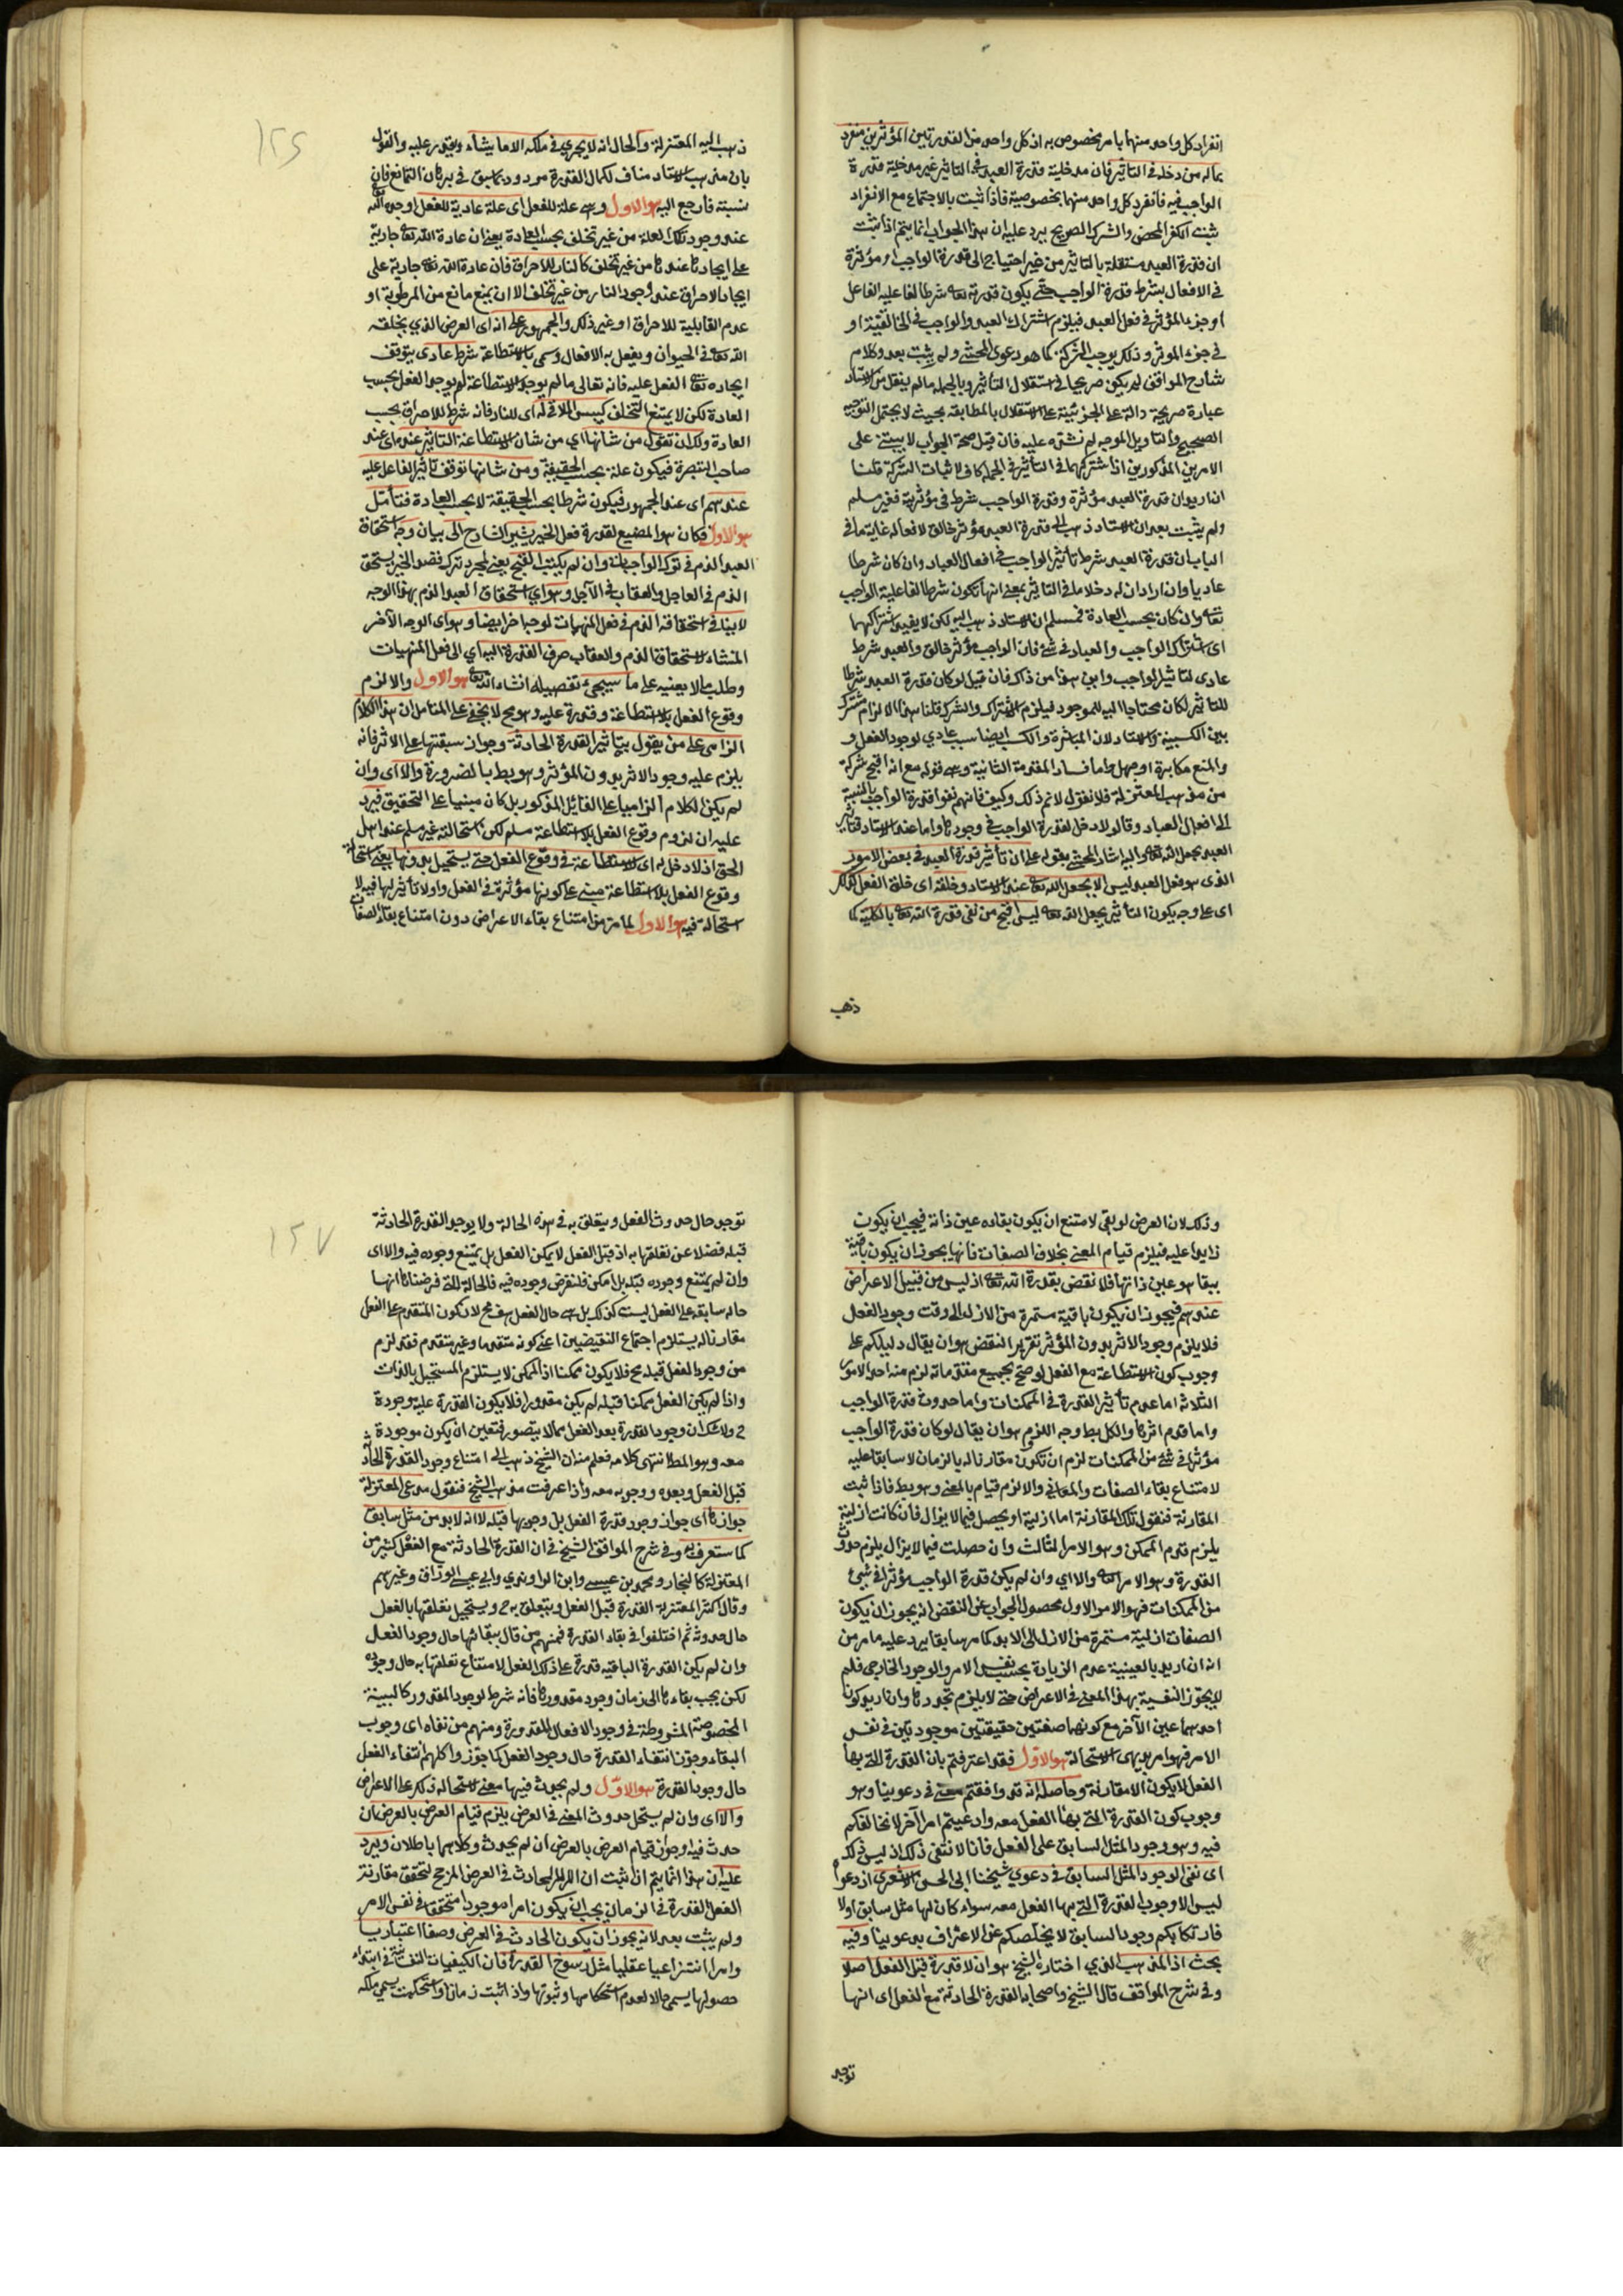 انفراد كل واحد منهما بامر مخصوص به اذ كل واحد من القدرتين المؤثرين منفرد
بماله من دخله فى التأثير فان مدخلية قدرة العبد فى التاثير غير مدخلية قدرة
الواجب فيه فانفرد كل واحد منهما بخصوصية فاذا ثبت بالاجتماع مع الانفراد
ثبت الكفر المحض والشرك الصريح يرد عليه ان هذا الجواب انما يتم اذا ثبت
ان قدرة العبد مستقلة بالتاثير من غير احتياج الى قدرة الواجب او مؤثرة
فى الافعال بشرط قدرة الواجب حتى يكون قدرته تعالى شرطا لفاعلية الفاعل
او جزء المؤثر فى فعل العبد فيلزم اشتراك العبد والواجب فى الخالقية او
فى جزء الموثر وذلك يوجب الشركة كما هو دعوى المحشى ولم يثبت بعد وكلام
شارح المواقف لم يكن صريحا فى استقلال التأثير وبالجملة مالم ينقل من الاستاد
عبارة صريحة دالة على الجزئية على الاستقلال بالمطابقة بحيث لا يحتمل التوجيه
الصحيح والتاويل الموجه لم نشنع عليه فان قيل صحة الجواب لا يبتنى على
الامرين المذكورين اذ اشتراكهما فى التأثير فى الجملة كاف لاثبات الشركة قلنا
ان اريد ان قدرة العبد مؤثرة وقدرة الواجب شرط فى مؤثريته فغير مسلم
ولم يثبت بعد ان الاستاد ذهب الى قدرة العبد مؤثر خالق لافعاله غاية ما فى
الباب ان قدرة العبد شرط تأثير الواجب فى افعال العباد وان كان شرطا
عاديا وان اراد ان له دخلا ما فى التاثير بمعنى انها تكون شرطا لفاعلية الواجب
تعالى وان كان بحسب العادة فمسلم ان الاستاد ذهب اليه لكن لا يفيد اشتراكهما
اى اشتراك الواجب والعباد فى شئ فان الواجب مؤثر خالق والعبد شرط
عادى لتاثير الواجب واين هذا من ذاك فان قيل لو كان قدرة العبد شرطا
للتاثير لكان محتاجا اليه للموجود فيلزم الاشتراك والشرك قلنا هذا الالزام مشترك
بين الكسبية والاستاد لان المباشرة والكسب ايضا سبب عادي لوجود الفعل و
والمنع مكابرة او جهل واما فساد المقدمة الثانية وهى قوله مع انه اقبح شركة
من مذهب المعتزلة فلا نقول لا نم ذلك وكيف فانهم نفوا قدرة الواجب بالنسبة
الى افعال العباد وقالوا لا دخل لقدرة الواجب فى وجودها واما عند الاستاد فتاثير
العبد بجعل الله تعالى واليه اشار المحشى بقوله على ان تأثير قدرة العبد فى بعض الامور
الذى هو فعل العبد ليس الا بجعل الله تعالى عند الاستاد وخلقه اى خلق الفعل كذلك
اى على وجه يكون التأثير بجعل الله تعالى ليس اقبح من نفى قدرة الله تعالى بالكلية كما
ذهب
ذهب اليه المعتزلة والحال انه لا يجرى فى ملكه الا ما يشاء ويقدر عليه والقول
بان مذهب الاستاد مناف لكمال القدرة مردود بما سبق فى برهان التمانع فان
نسبته فارجع اليه هو الاول وهى علة للفعل اى علة عادية للفعل اوجده الله
عند وجود تلك العلة من غير تخلف بحسب العادة يعنى ان عادة الله تعالى جارية
على ايجادها عندها من غير تخلف كالنار للاحراق فان عادة الله تعالى جارية على
ايجاد الاحراق عند وجود النار من غير تخلف الا ان يمنع مانع من الرطوبة او
عدم القابلية للاحراق او غير ذلك والجمهور على انه اى العرض الذى يخلقه
الله تعالى فى الحيوان ويفعل به الافعال وسمى بالاستطاعة شرط عادى يتوقف
ايجاده تعالى الفعل عليه فانه تعالى مالم يوجد الاستطاعة لم يوجد الفعل بحسب
العادة لكن لا يمتنع التخلف كيبس الملاقى له اى للنار فانه شرط للاحراق بحسب
العادة ولك ان تقول من شانها اى من شان الاستطاعة التاثير عنده اى عند
صاحب التبصرة فيكون علة بحسب الحقيقة ومن شانها توقف تأثير الفاعل عليه
عندهم اى عند الجمهور فيكون شرطا بحسب الحقيقة لا بحسب العادة فتأمل
هو الاول فكان هو المضيع لقدرة فعل الخير يشير الشارح الى بيان وجه استحقاق
العبد الذم فى ترك الواجبات وان لم يكتسب القبيح يعنى لمجرد ترك قصد الخير يستحق
الذم فى العاجل والعقاب فى الآجل وهو اى استحقاق العبد الذم بهذا الوجه
لا ينافى استحقاقه الذم فى فعل المنهيات لوجه اخر ايضا وهو اى الوجه الآخر
المنشاء لاستحقاق الذم والعقاب صرف القدرة اليه اى الى فعل المنهيات
وطلب ما لا يعنيه على ما سيجئ تفصيله انشاء الله تعالى هو الاول والا لزم
وقوع الفعل بلا استطاعة وقدرة عليه وهو مح لا يخفى على المتامل ان هذا الكلام
الزامى على من يقول بتأثير القدرة الحادثة وجواز سبقتها على الاثر فانه
يلزم عليه وجود الاثر بدون المؤثر وهو بط بالضرورة والا اى وان
لم يكن الكلام الزاميا على القائل المذكور بل كان مبنيا على التحقيق فيرد
عليه ان لزوم وقوع الفعل بلا استطاعة مسلم لكن استحالته غير مسلم عند اهل
الحق اذ لا دخل له اى للاستطاعة فى وقوع الفعل حتى يستحيل بدونها يعنى استحالة
وقوع الفعل بلا استطاعة مبنى على كونها مؤثرة فى الفعل واولا تأثير لها فيه لا
استحالة فيه هو الاول لما مر من امتناع بقاء الاعراض دون امتناع بقاء الصفات
وذلك لان العرض لو بقى لامتنع ان يكون بقاءه عين ذاته فيجب ان يكون
زايدا عليه فيلزم قيام المعنى بخلاف الصفات فانها يجوز ان يكون باقية
ببقا هو عين ذاتها فلا نقض بقدرة الله تعالى اذ ليس من قبيل الاعراض
عندهم فيجوز ان يكون باقية مستمرة من الازل الى وقت وجود الفعل
فلا يلزم وجود الاثر بدون المؤثر تقرير النقض هو ان يقال دليلكم على
وجوب كون الاستطاعة مع الفعل لو صح بجميع مقدماته لزم منه احد الامور
الثلاثة اما عدم تأثير القدرة فى الممكنات واما حدوث قدرة الواجب
واما قدم اثرها والكل بط وجه اللزوم هو ان يقال لو كان قدرة الواجب
مؤثرا فى شئ من الممكنات لزم ان تكون مقارنا له بالزمان لا سابقا عليه
لامتناع بقاء الصفات والمعانى والا لزم قيام بالمعنى وهو بط فاذا ثبت
المقارنة فنقول تلك المقارنة اما ازلية او يحصل فيما لا يزال فان كانت ازلية
يلزم قدم الممكن وهو الامر الثالث وان حصلت فيما لا يزال يلزم حدوث
القدرة وهو الامر الثانى والا اى وان لم يكن قدرة الواجب مؤثرا فى شئ
من الممكنات فهو الامر الاول محصول الجواب عن النقض انه يجوز ان يكون
الصفات ازلية مستمرة من الازل الى الابد كما مر سابقا يرد عليه ما مر من
انه ان اريد بالعينية عدم الزيادة بحسب نفس الامر والوجود الخارجى فلم
لا يجوز النفسية بهذا المعنى فى الاعراض حتى لا يلزم تجددها وان اريد كون
احدهما عين الآخر مع كونهما صفتين حقيقتين موجودتين فى نفس
الامر فهو امر بديهى الاستحالة هو الاول فقد اعترفتم بان القدرة التى بها
الفعل لا يكون الا مقارنة وحاصله انه قد وافقتم معنى فى دعوينا وهو
وجوب كون القدرة التى بها الفعل معه وادعيتم امرا آخر لا نخالفكم
فيه وهو وجود المثل السابق على الفعل فانا لا ننفى ذلك اذ ليس ذلك
اى نفى الوجود المثل السابق فى دعوى شيخنا ابى الحسن الاشعرى اذ دعواه
ليس الا وجوب القدرة التى بها الفعل معه سواء كان لها مثل سابق اولا
فارتكابكم وجود السابق لا يخلصكم عن الاعتراف بدعوينا وفيه
بحث اذ المذهب الذى اختاره الشيخ هو ان لا قدرة قبل الفعل اصلا
وفى شرح المواقف قال الشيخ واصحابه القدرة الحادثة مع الفعل اى انها
توجد
توجد حال حدوث الفعل ويتعلق به فى هذه الحالة ولا يوجد القدرة الحادثة
قبله فضلا عن تعلقها به اذ قبل الفعل لا يمكن الفعل بل يمتنع وجوده فيه والا اى
وان لم يمتنع وجوده قبله بل امكن فلنفرض وجوده فيه فالحالة التى فرضناها انها
حالة سابقة على الفعل ليست كذلك بل هى حال الفعل هف مح لان كون المتقدم على الفعل
مقارنا له يستلزم اجتماع النقيضين اعنى كونه متقدما وغير متقدم فقد لزم
من وجود الفعل قبله مح فلا يكون ممكنا اذ الممكن لا يستلزم المستحيل بالذات
واذا لم يكن الفعل ممكنا قبله لم يكن مقدورا فلا يكون القدرة عليه موجودة
ح ولا شك ان وجود القدرة بعد الفعل مما لا يتصور فتعين ان يكون موجودة
معه وهو المط انتهى كلامه فعلم منه ان الشيخ ذهب الى امتناع وجود القدرة الحادثة
قبل الفعل وبعده ووجوبه معه واذا عرفت مذهب الشيخ فنقول مدعى المعتزلة
جوازها اى جواز وجود قدرة الفعل بل وجوبها قبله لا انه لابد من مثل سابق
كما ستعرف به وفى شرح المواقف الشيخ فى ان القدرة الحادثة مع الفعل كثير من
المعتزلة كالنجار ومحمد بن عيسى وابن الراوندى وابى عيسى الوراق وغيرهم
وقال اكثر المعتزلة القدرة قبل الفعل ويتعلق به ح ويستحيل تعلقها بالفعل
حال حدوثه ثم اختلفوا فى بقاء القدرة فمنهم من قال ببقائها حال وجود الفعل
وان لم يكن القدرة الباقية قدرة على ذلك الفعل لامتناع تعلقها به حال وجوده
لكن يجب بقاءها الى زمان وجود مقدورها فانه شرط لوجود المقدور كالبينة
المخصوصة المشروطة فى وجود الافعال المقدورة ومنهم من نفاه اى وجوب
البقاء وجوز انتفاء القدرة حال وجود الفعل كما جوزوا كلهم انتفاء الفعل
حال وجود القدرة هو الاول ولم يحدث فيها معنى لاستحالة ذلك على الاعراض
والا اى وان لم يستحل حدوث المعنى فى العرض يلزم قيام العرض بالعرض ان
حدث فيه او جواز قيام العرض بالعرض ان لم يحدث وكلاهما باطلان ويرد
عليه ان هذا انما يتم اذا ثبت ان الامر الحادث فى العرض المرجح لتحقق مقارنة
الفعل لقدرة فى الزمان يجب ان يكون امرا موجودا متحققا فى نفس الامر
ولم يثبت بعد لانه يجوز ان يكون الحادث فى العرض وصفا اعتباريا
وامرا انتزاعيا عقليا مثل رسوخ القدرة فان الكيفيات النفسانية فى ابتداء
حصولها يسمى حالا لعدم استحكامها وثبوتها واذا ثبت زمانا واستحكمت يسمى ملكة
١٢٧